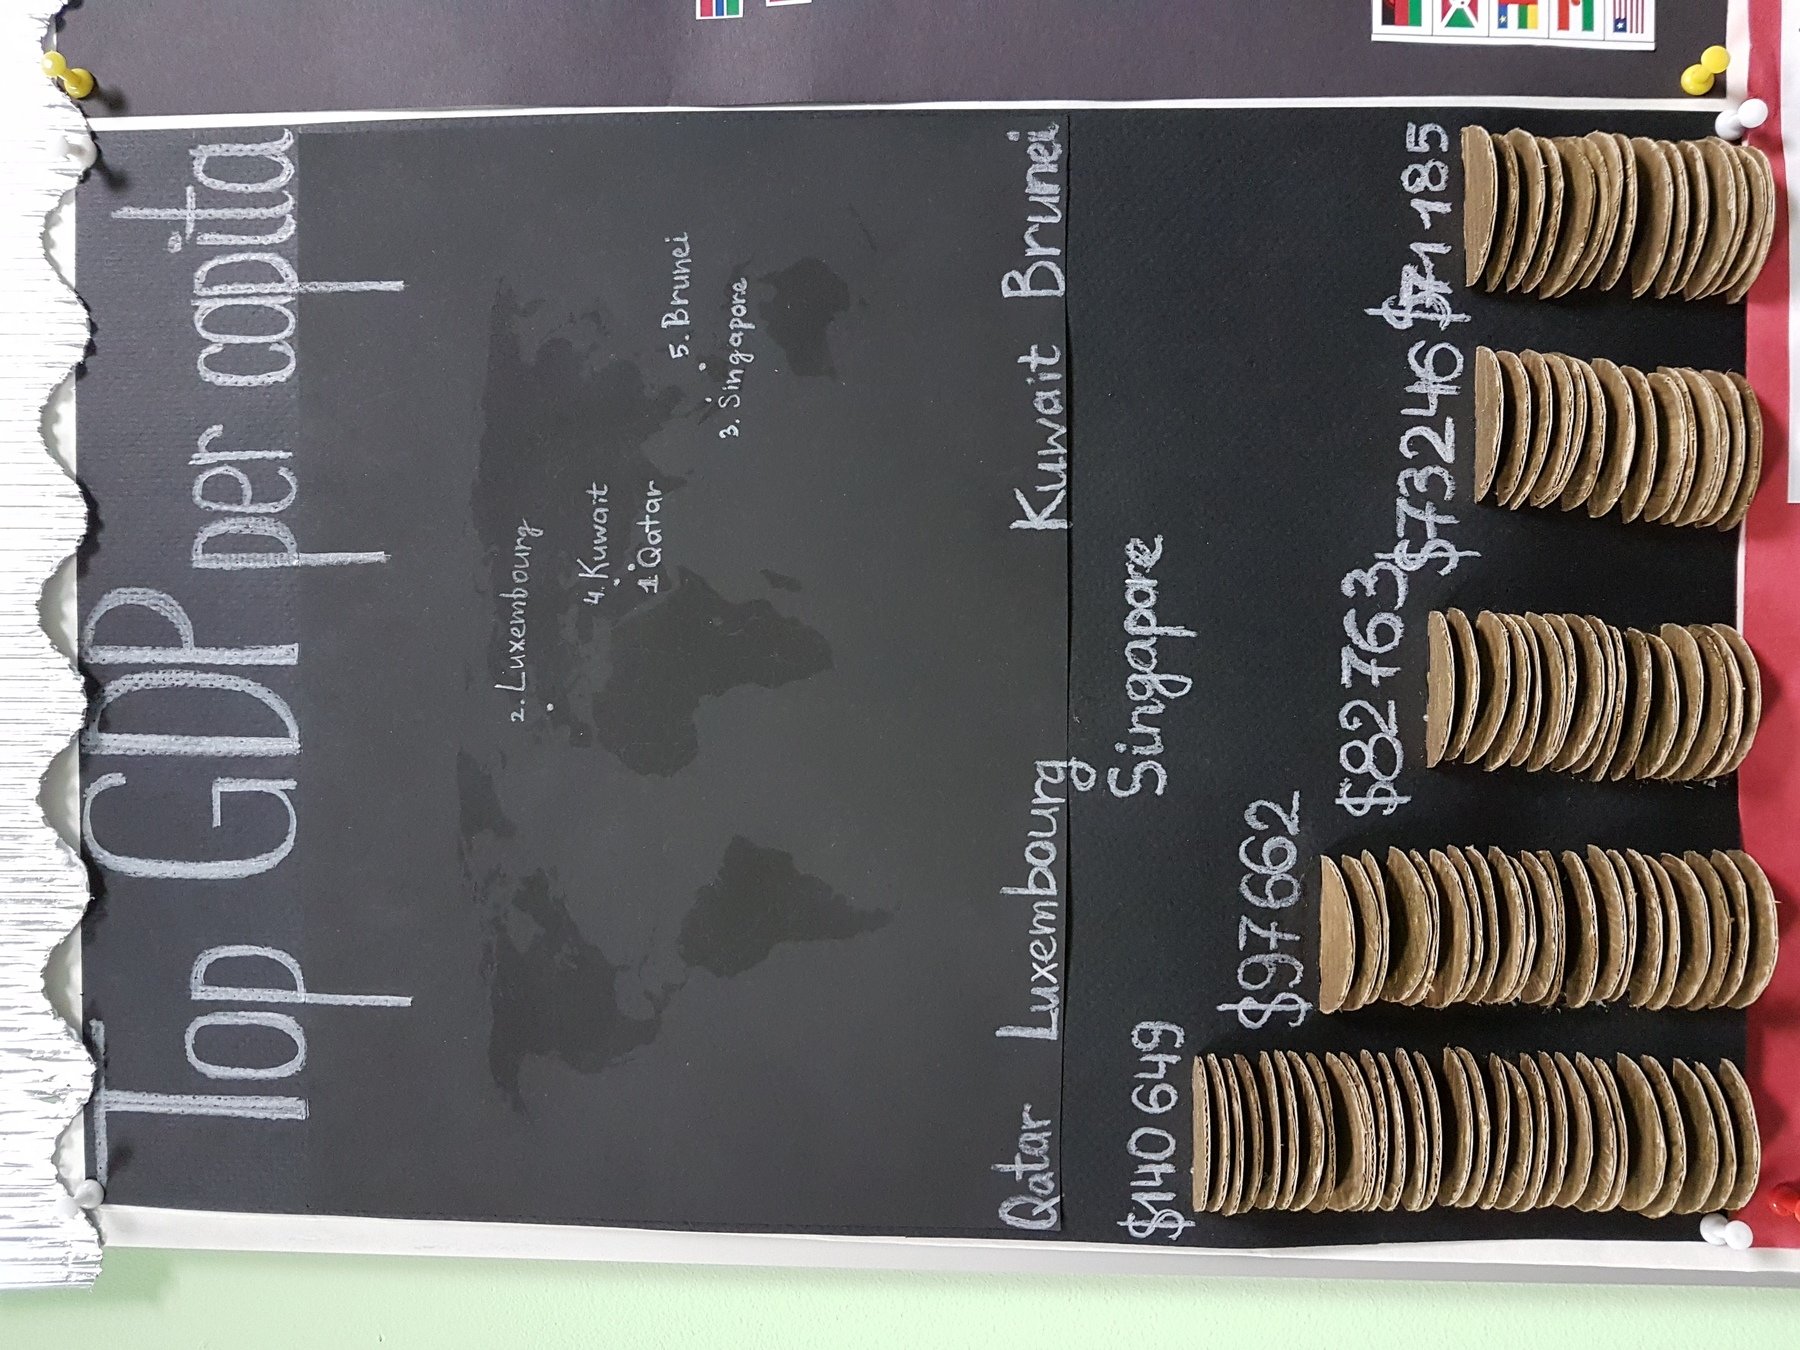 Top GDP per capita
2. Luxembourg
4. Kuwait
1. Qatar
5. Brunei
3. Singapore
Qatar Luxembourg Singapore Kuwait Brunei
$140 649 $97 662 $82 763 $73 246 $71 185